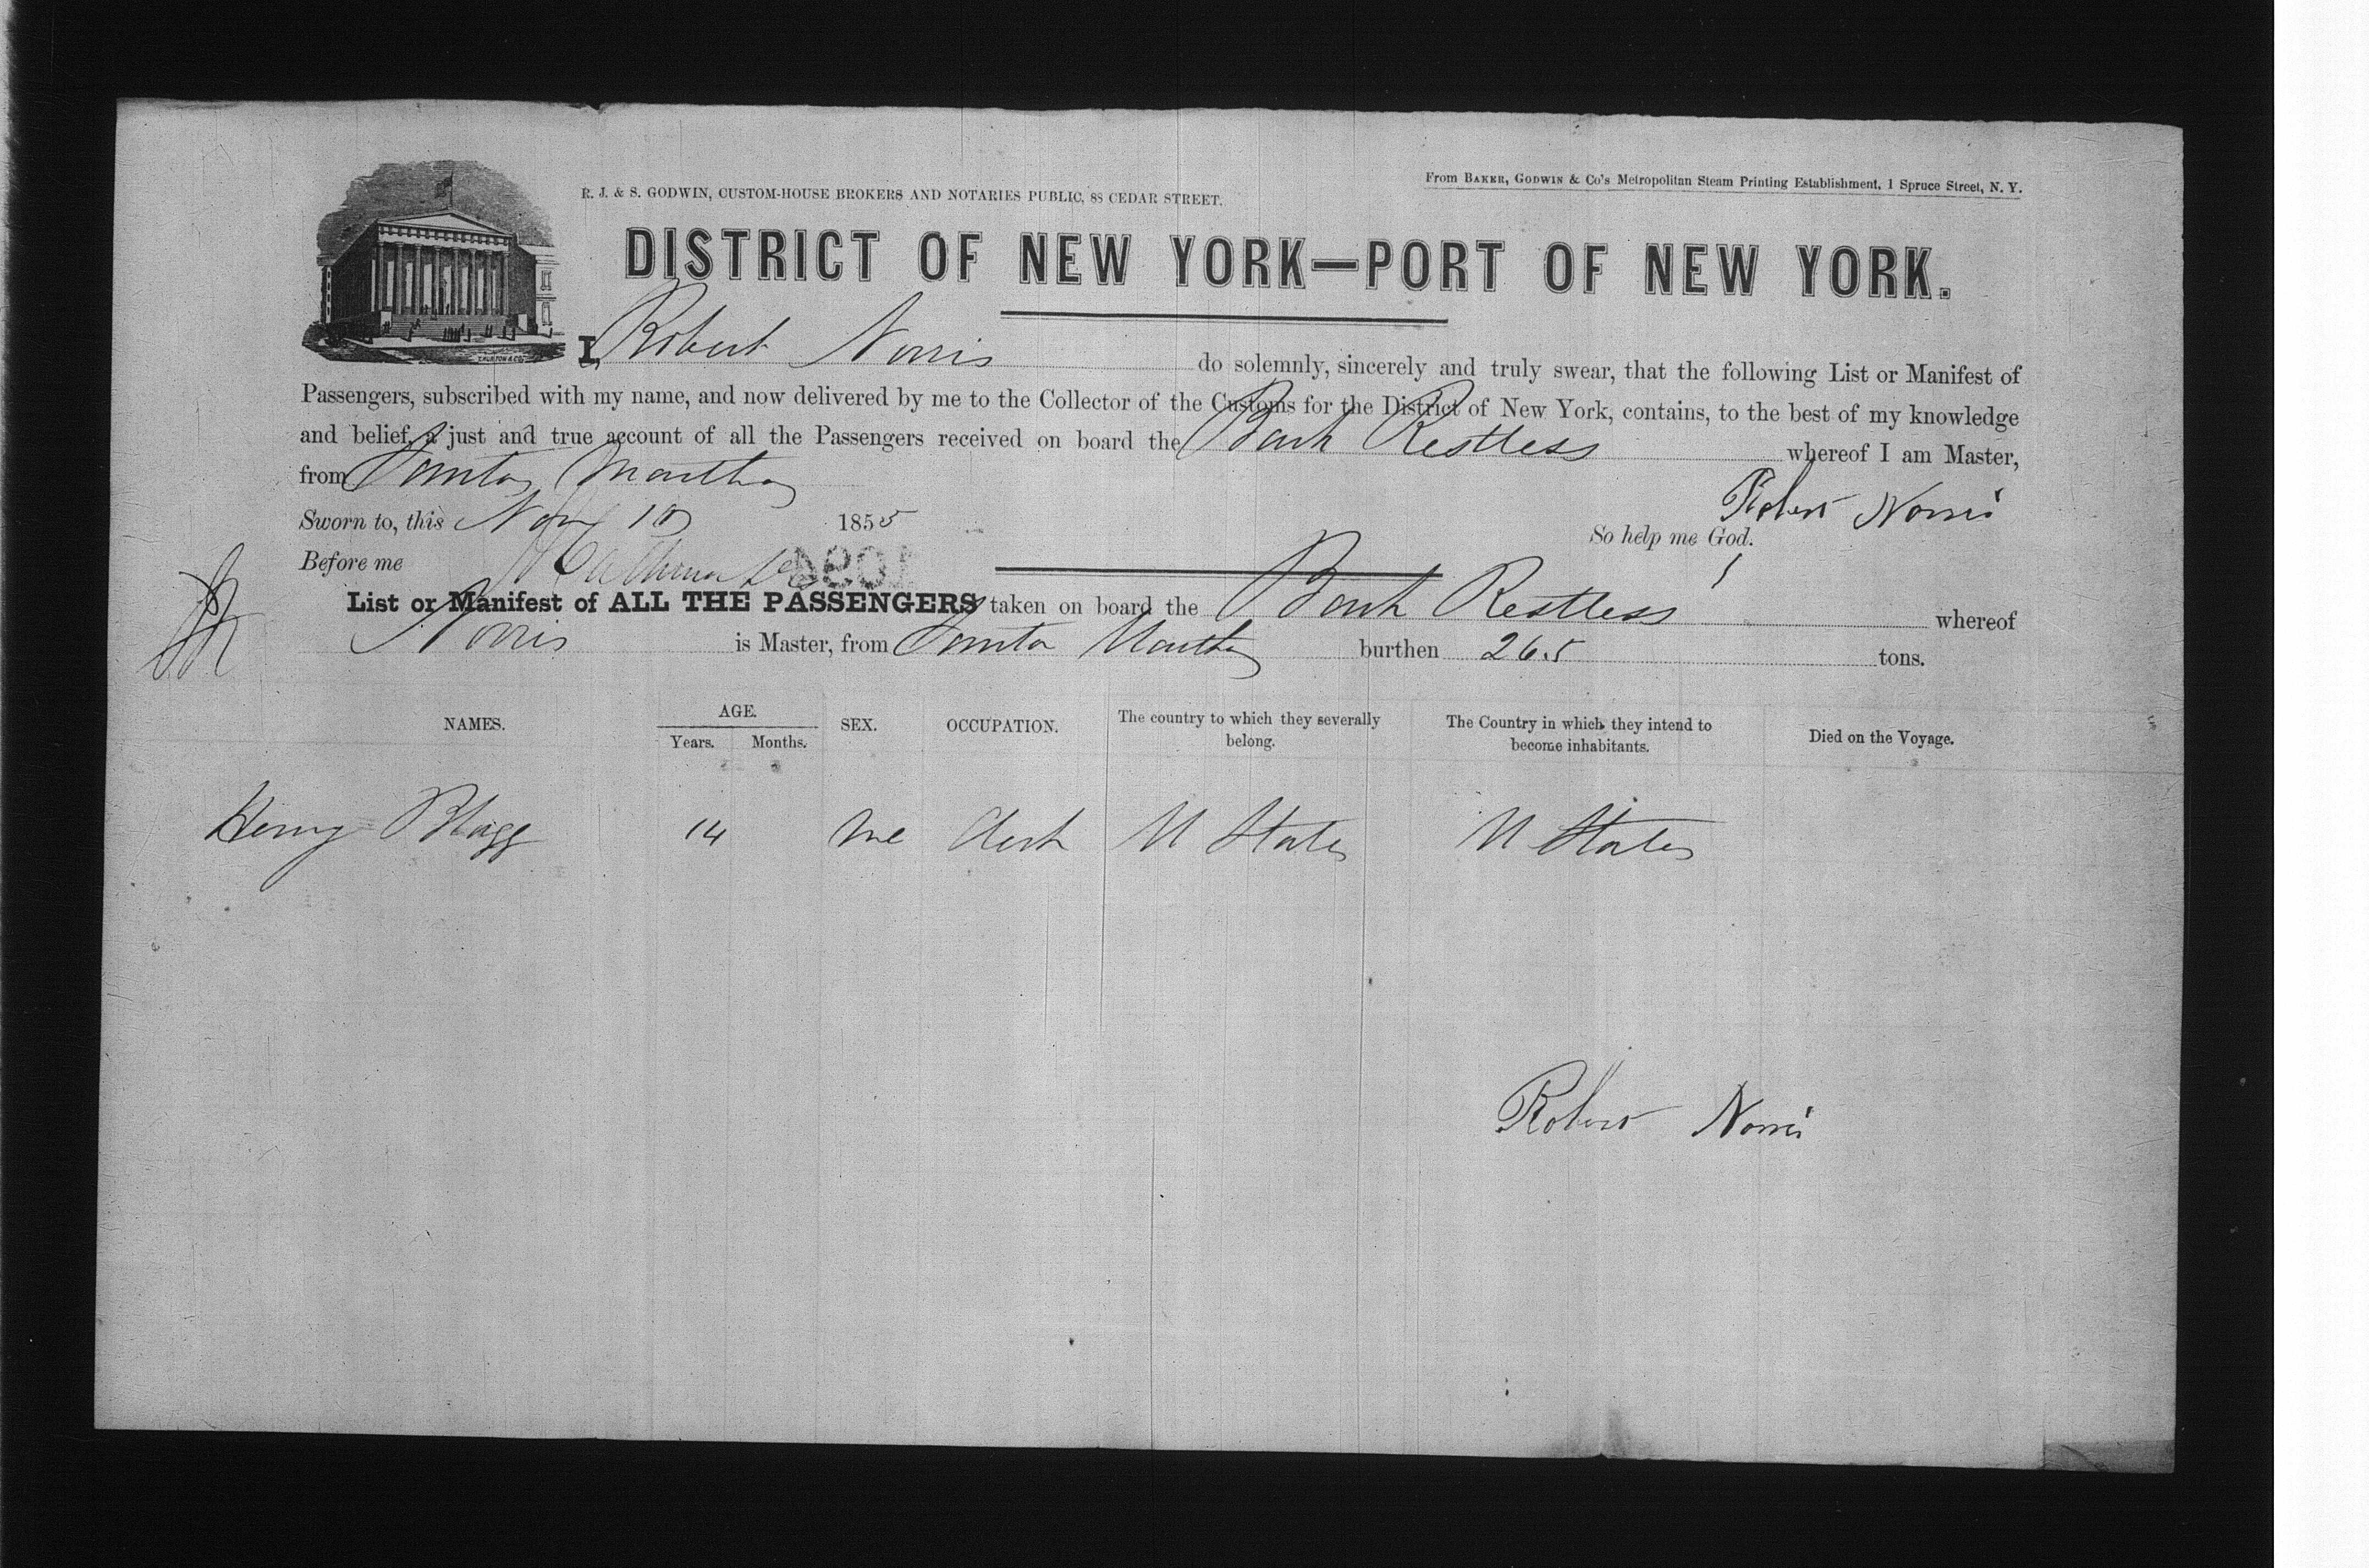 R. J. & S. GODWIN, CUSTOM-HOUSE BROKERS AND NOTARIES PUBLIC, 88 CEDAR STREET.
From BAKER, GODWIN & Co's Metropolitan Steam Printing Establishment, 1 Spruce Street, N. Y.
DISTRICT OF NEW YORK—PORT OF NEW YORK.
I, Robert Norris do solemnly, sincerely and truly swear, that the following List or Manifest of
Passengers, subscribed with my name, and now delivered by me to the Collector of the Customs for the District of New York, contains, to the best of my knowledge
and belief, a just and true account of all the Passengers received on board the Bark Restless whereof I am Master,
from Santa Martha
Robert Norris
Sworn to, this Nov 10 1855
So help me God.
Before me
List or Manifest of ALL THE PASSENGERS taken on board the Bark Restless whereof
Norris is Master, from Santa Martha burthen 265 tons.
NAMES. AGE. SEX. OCCUPATION. The country to which they severally belong. The Country in which they intend to become inhabitants. Died on the Voyage.
Years. Months.
Henry Blagg 14 me Clerk U States U States
Robert Norris